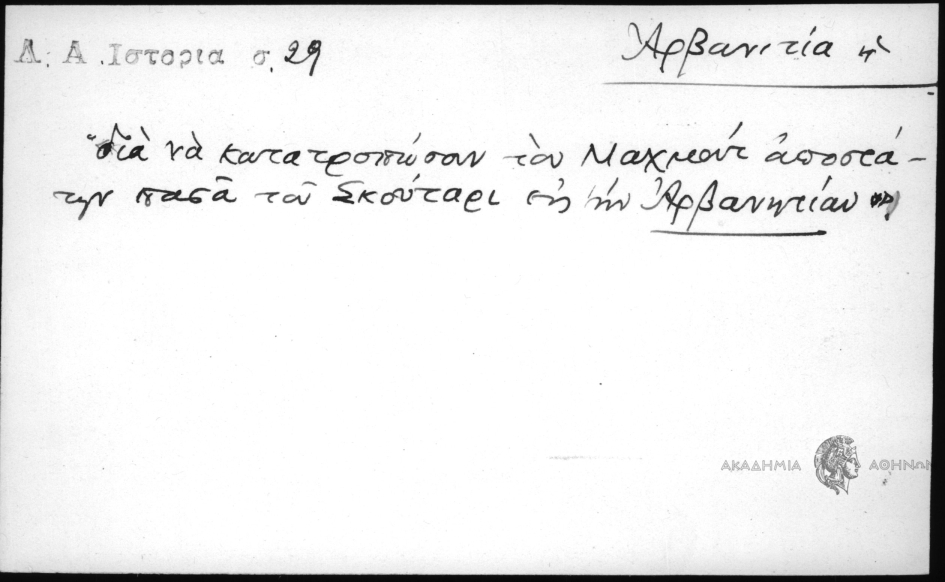 Λ. Α. Ιστορια σ. 29
Ἀρβανιτία ἡ
"διὰ νὰ κατατροπώσουν τὸν Μαχμοὺτ ἀποστά-
την πασᾶ τοῦ Σκούταρι εἰς τὴν Ἀρβανητίαν"
ΑΚΑΔΗΜΙΑ ΑΘΗΝΩΝ